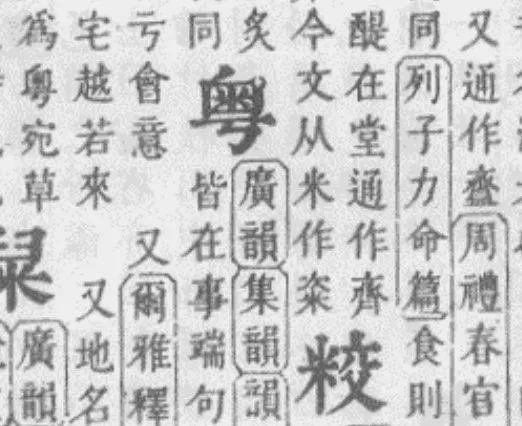 又通作齍周禮春官
同列子力命篇食則
醍在堂通作齊
今文从米作粢
炙
同
粤
廣韻集韻韻
皆在事端句
亏會意 又爾雅釋
宅越若來 又地名
爲粤宛草
廣韻